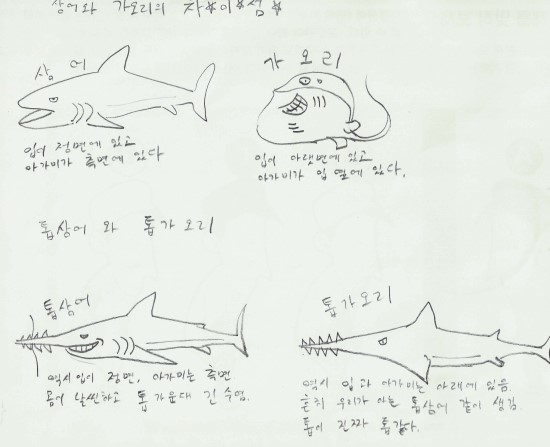 상어와 가오리의 차*이*점*
상어
가오리
입이 정면에 있고
아가미가 측면에 있다
입이 아랫면에 있고
아가미가 입 옆에 있다.
톱상어 와 톱가오리
톱상어
톱가오리
역시 입이 정면, 아가미는 측면
몸이 날씬하고 톱 가운데 긴 수염.
역시 입과 아가미는 아래에 있음
흔히 우리가 아는 톱상어 같이 생김.
톱이 진짜 톱같다.